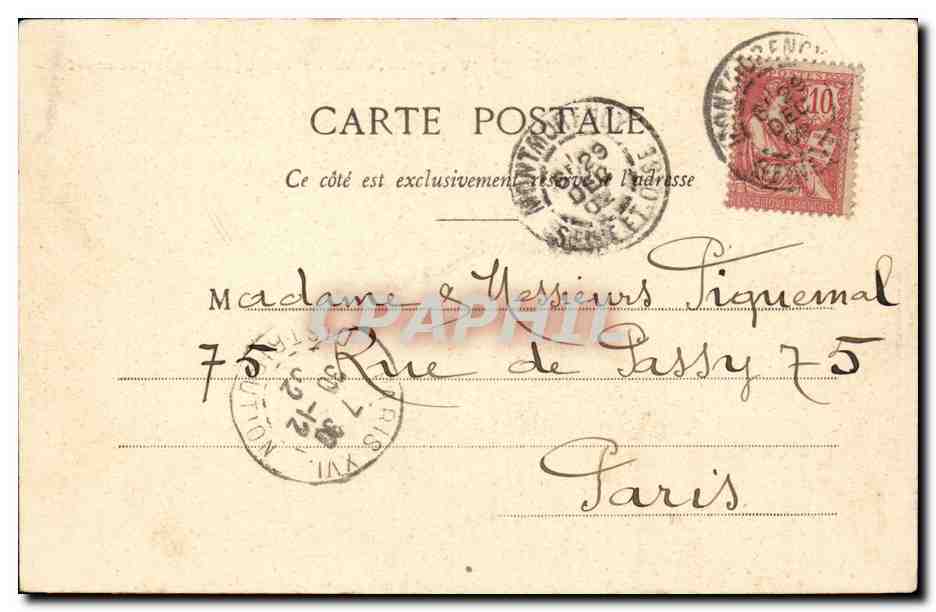 CARTE POSTALE
Ce côté est exclusivement réservé à l'adresse
MONTMORENCY
29
DEC
02
SEINE-ET-OISE
POSTES
10
RÉPUBLIQUE FRANÇAISE
Madame & Messieurs Piquemal
75 Rue de Passy 75
Paris
CPAPHIL
PARIS XVI
DISTRIBUTION
7 30
30 -12